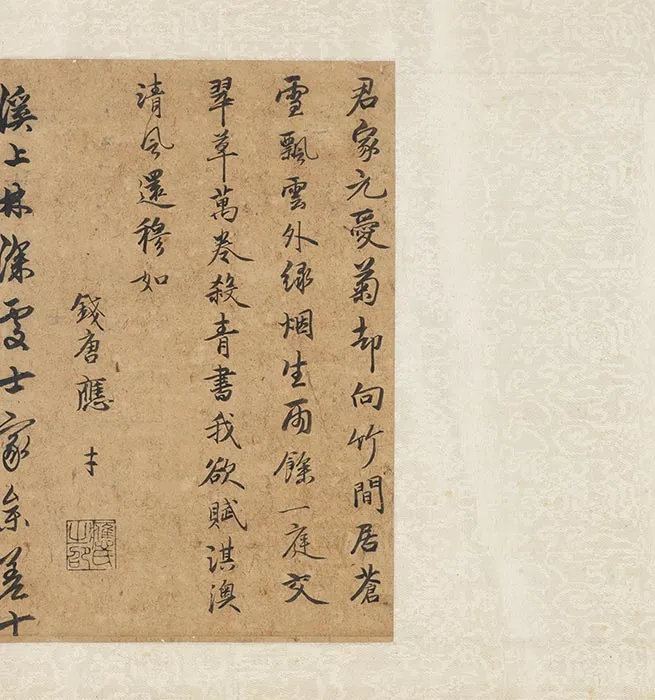 君家元愛菊却向竹間居蒼
雪飄雲外綠烟生雨餘一庭交
翠草萬卷殺青書我欲賦淇澳
清風還穆如
錢唐應才
溪上林深處士家參差十